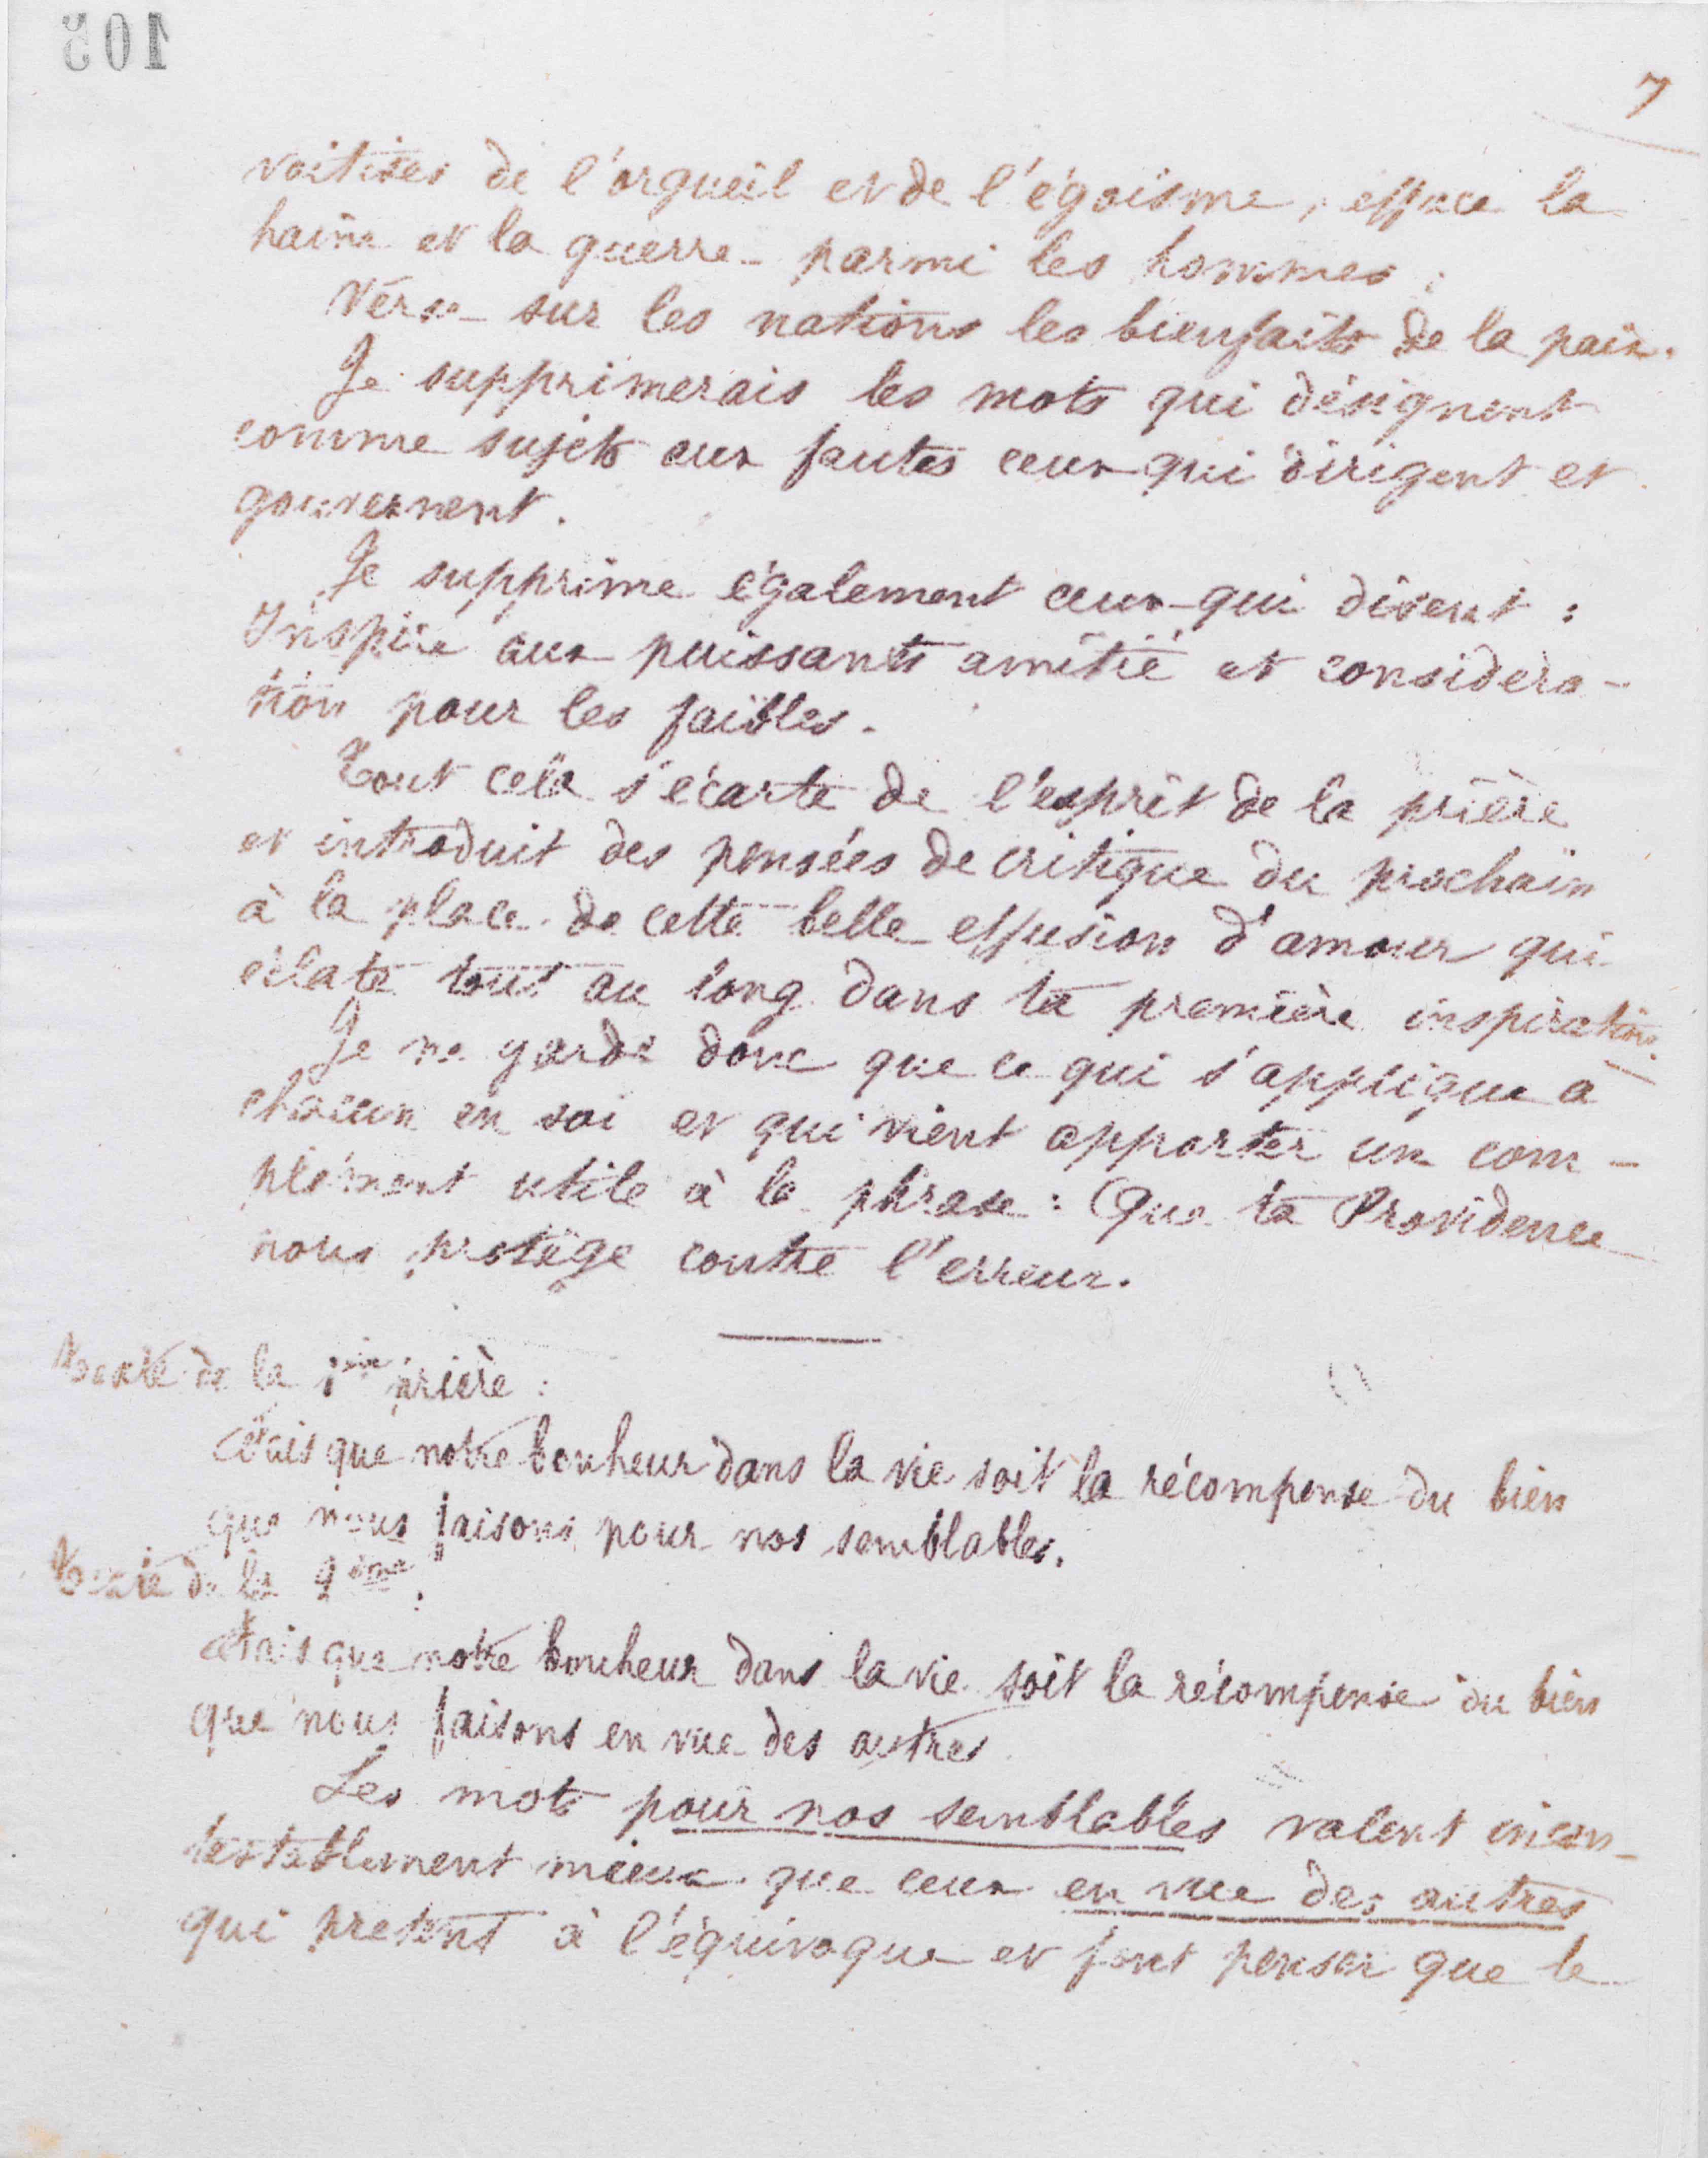 105
7
voitises de l'orgueil et de l'égoïsme, efface la
haine et la guerre parmi les hommes ;
Verse sur les nations les bienfaits de la paix.
Je supprimerais les mots qui désignent
comme sujets aux fautes ceux qui dirigent et
gouvernent.
Je supprime également ceux qui disent :
Inspire aux puissants amitié et considéra-
tion pour les faibles.
Tout cela s'écarte de l'esprit de la prière
et introduit des pensées de critique du prochain
à la place de cette belle effusion d'amour qui
éclate tout au long dans ta première inspiration.
Je ne garde donc que ce qui s'applique à
chacun en soi et qui vient apporter un com-
plément utile à la phrase : Que ta Providence
nous protège contre l'erreur.
Texte de la 1ère prière :
Fais que notre bonheur dans la vie soit la récompense du bien
que nous faisons pour nos semblables.
Texte de la 2ème :
Fais que notre bonheur dans la vie soit la récompense du bien
que nous faisons en vue des autres
Les mots pour nos semblables valent incon-
testablement mieux que ceux en vue des autres
qui pretent à l'équivoque et font penser que le